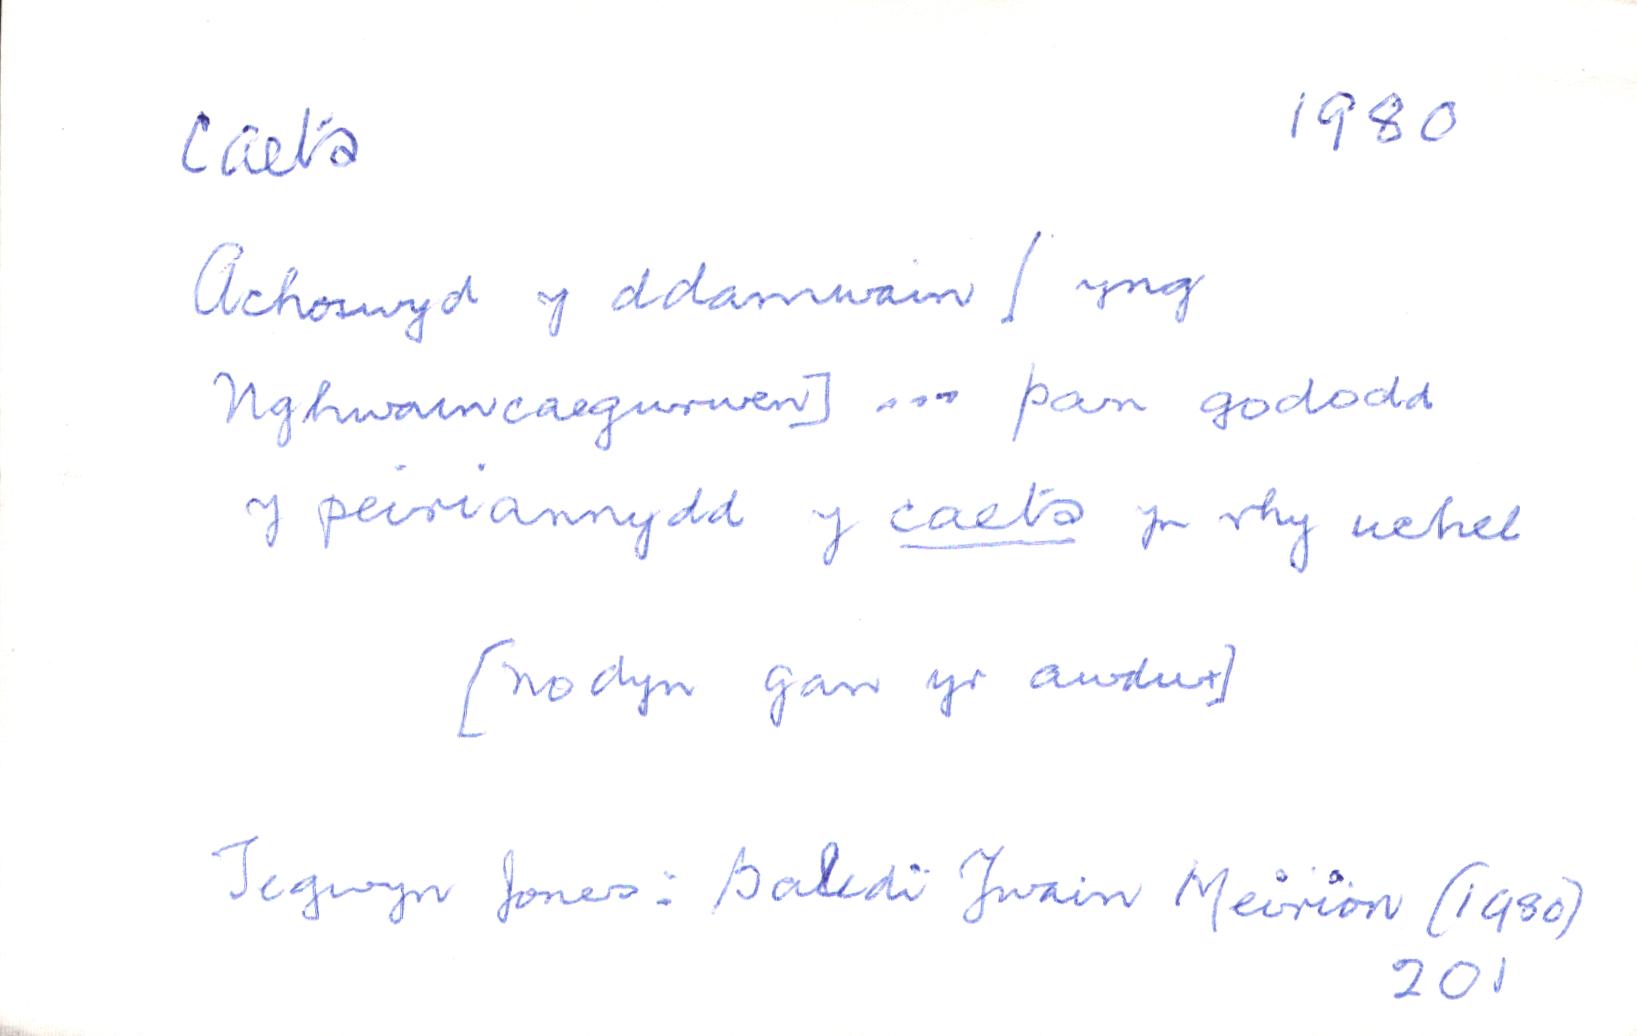 caets 1980
Achoswyd y ddamwain [yng
Nghwaincaegurwen] ... pan gododd
y peiriannydd y caets yn rhy uchel
[nodyn gan yr awdur]
Tegwyn Jones: Baledi Ywain Meirion (1980)
201